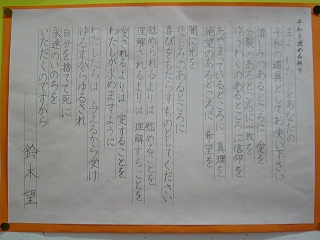 平和を求める祈り
主よ、わたしをあなたの
平和の道具としてお使い下さい
憎しみのあるところに 愛を
分裂のあるところに一致を
あやまっているところに 真理を
絶望のあるところに 希望を
闇に光を
悲しみのあるところに
喜びをもたらすものとしてください
慰められるよりは 慰めることを
理解されるよりは 理解することを
愛されるよりは 愛することを
わたしが求めますように
わたしたちは 与えるから受け
ゆるすからゆるされ
自分を捨てて死に
永遠のいのちを
いただくのですから
鈴木望